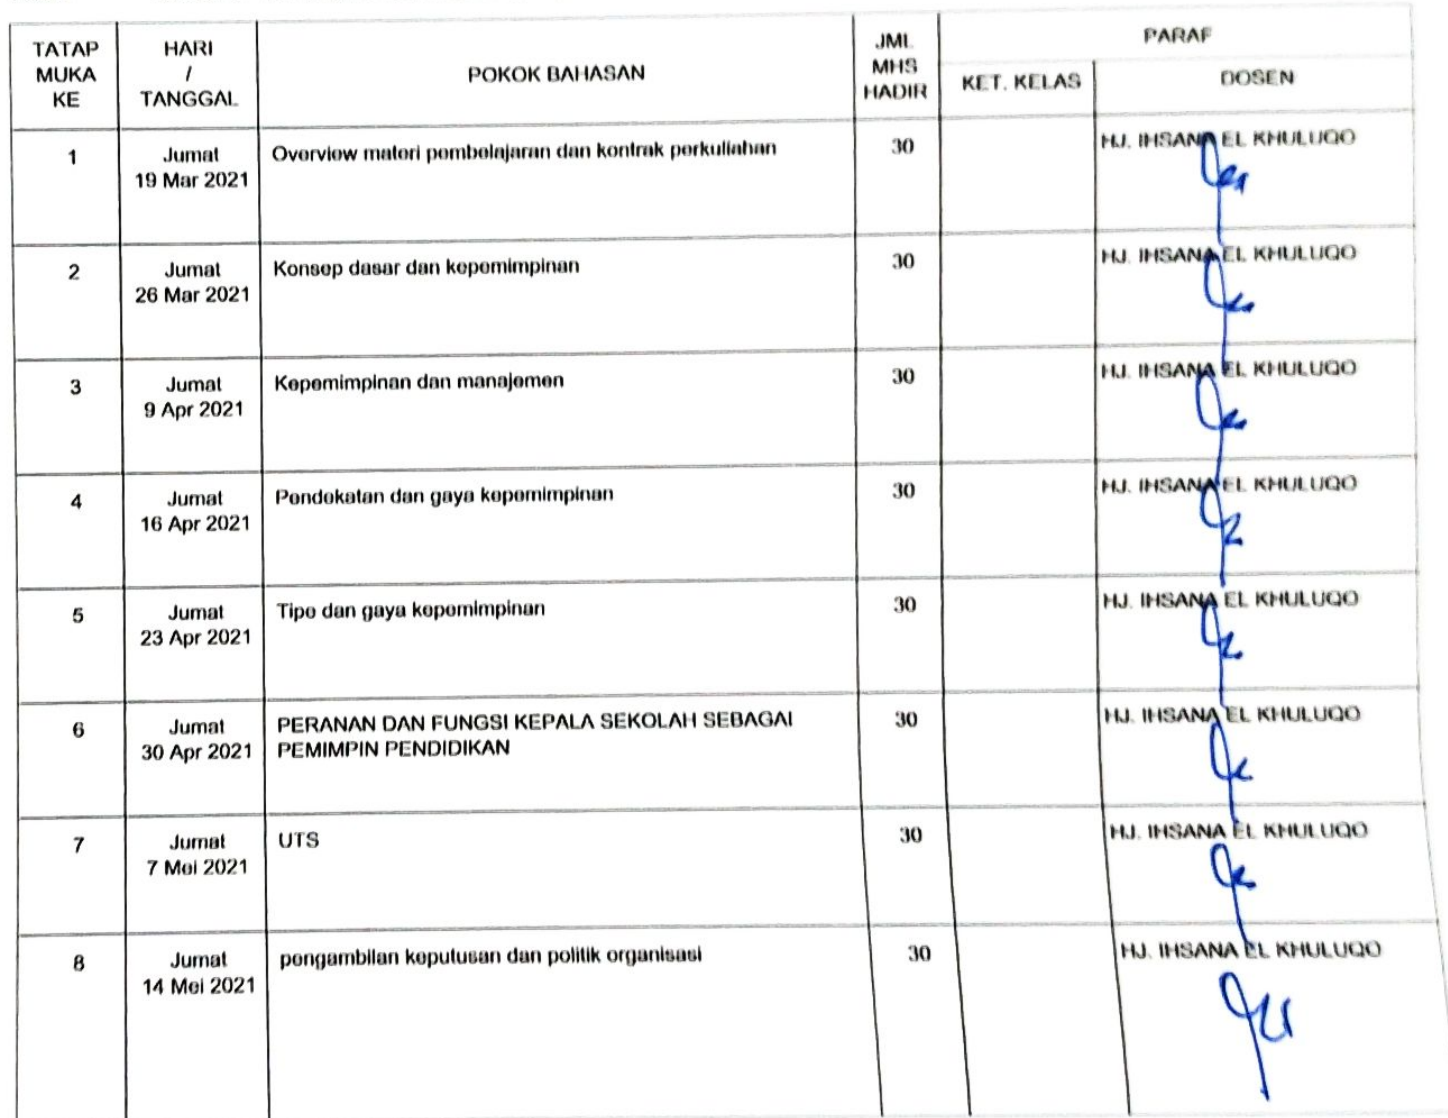 TATAP MUKA KE | HARI / TANGGAL | POKOK BAHASAN | JML MHS HADIR | PARAF
KET. KELAS | DOSEN
1 | Jumat 19 Mar 2021 | Overview materi pembelajaran dan kontrak perkuliahan | 30 | HJ. IHSANA EL KHULUQO
2 | Jumat 26 Mar 2021 | Konsep dasar dan kepemimpinan | 30 | HJ. IHSANA EL KHULUQO
3 | Jumat 9 Apr 2021 | Kepemimpinan dan manajemen | 30 | HJ. IHSANA EL KHULUQO
4 | Jumat 16 Apr 2021 | Pendekatan dan gaya kepemimpinan | 30 | HJ. IHSANA EL KHULUQO
5 | Jumat 23 Apr 2021 | Tipe dan gaya kepemimpinan | 30 | HJ. IHSANA EL KHULUQO
6 | Jumat 30 Apr 2021 | PERANAN DAN FUNGSI KEPALA SEKOLAH SEBAGAI PEMIMPIN PENDIDIKAN | 30 | HJ. IHSANA EL KHULUQO
7 | Jumat 7 Mei 2021 | UTS | 30 | HJ. IHSANA EL KHULUQO
8 | Jumat 14 Mei 2021 | pengambilan keputusan dan politik organisasi | 30 | HJ. IHSANA EL KHULUQO